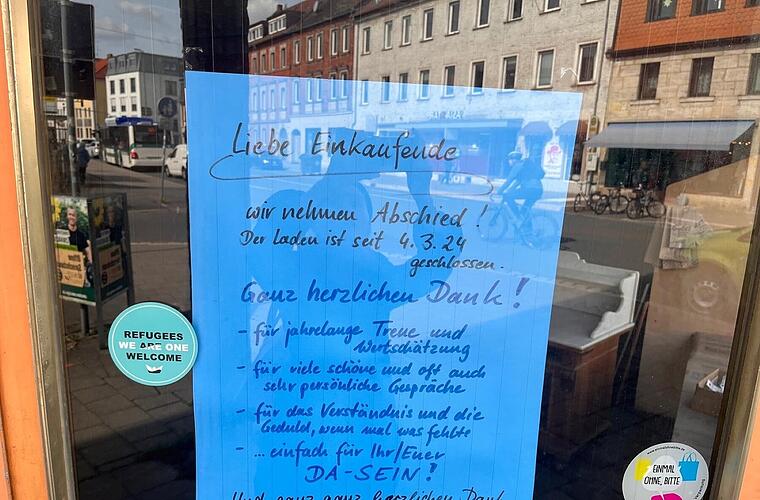 Liebe Einkaufende
wir nehmen Abschied!
Der Laden ist seit 4.3.24
geschlossen.
Ganz herzlichen Dank!
- für jahrelange Treue und
Wertschätzung
- für viele schöne und oft auch
sehr persönliche Gespräche
- für das Verständnis und die
Geduld, wenn mal was fehlte
- ... einfach für Ihr/Euer
DA-SEIN!
Und ganz ganz herzlichen Dank
REFUGEES
WE ARE ONE
WELCOME
EINMAL
OHNE, BITTE